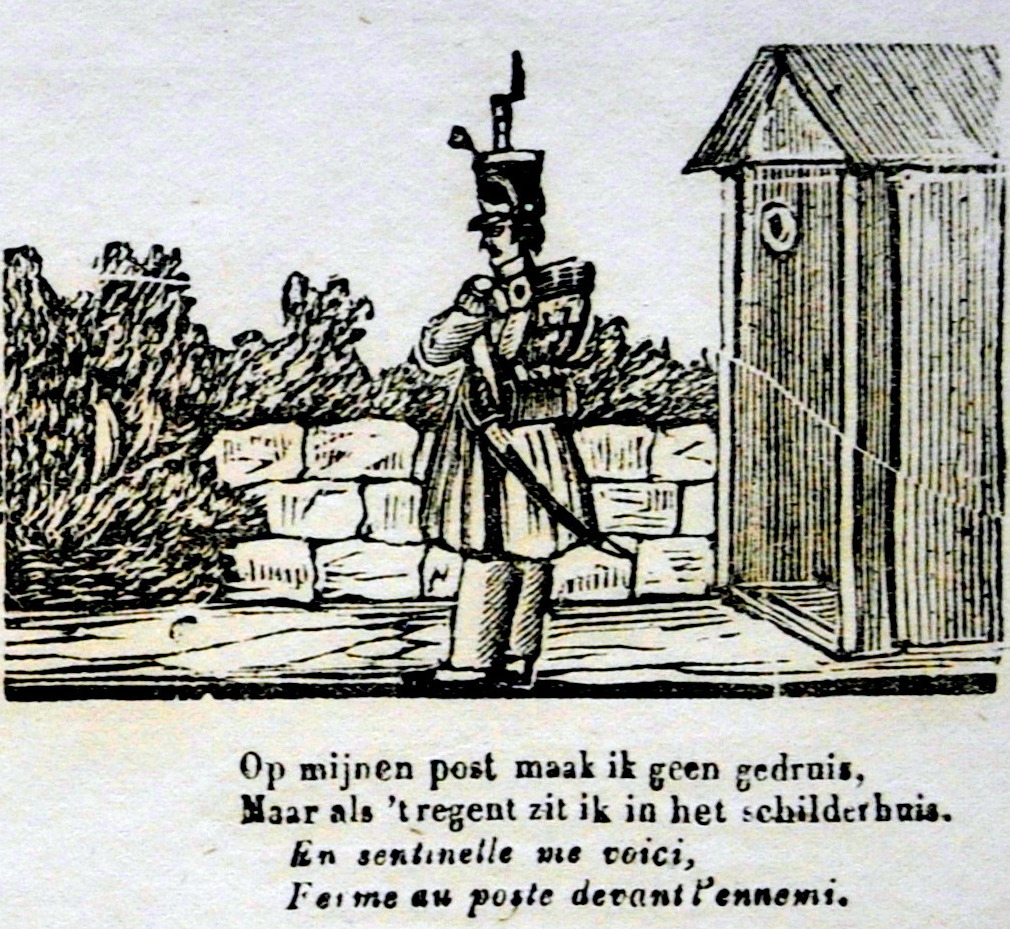 Op mijnen post maak ik geen gedruis,
Maar als 't regent zit ik in het schilderhuis.
En sentinelle me voici,
Ferme au poste devant l'ennemi.